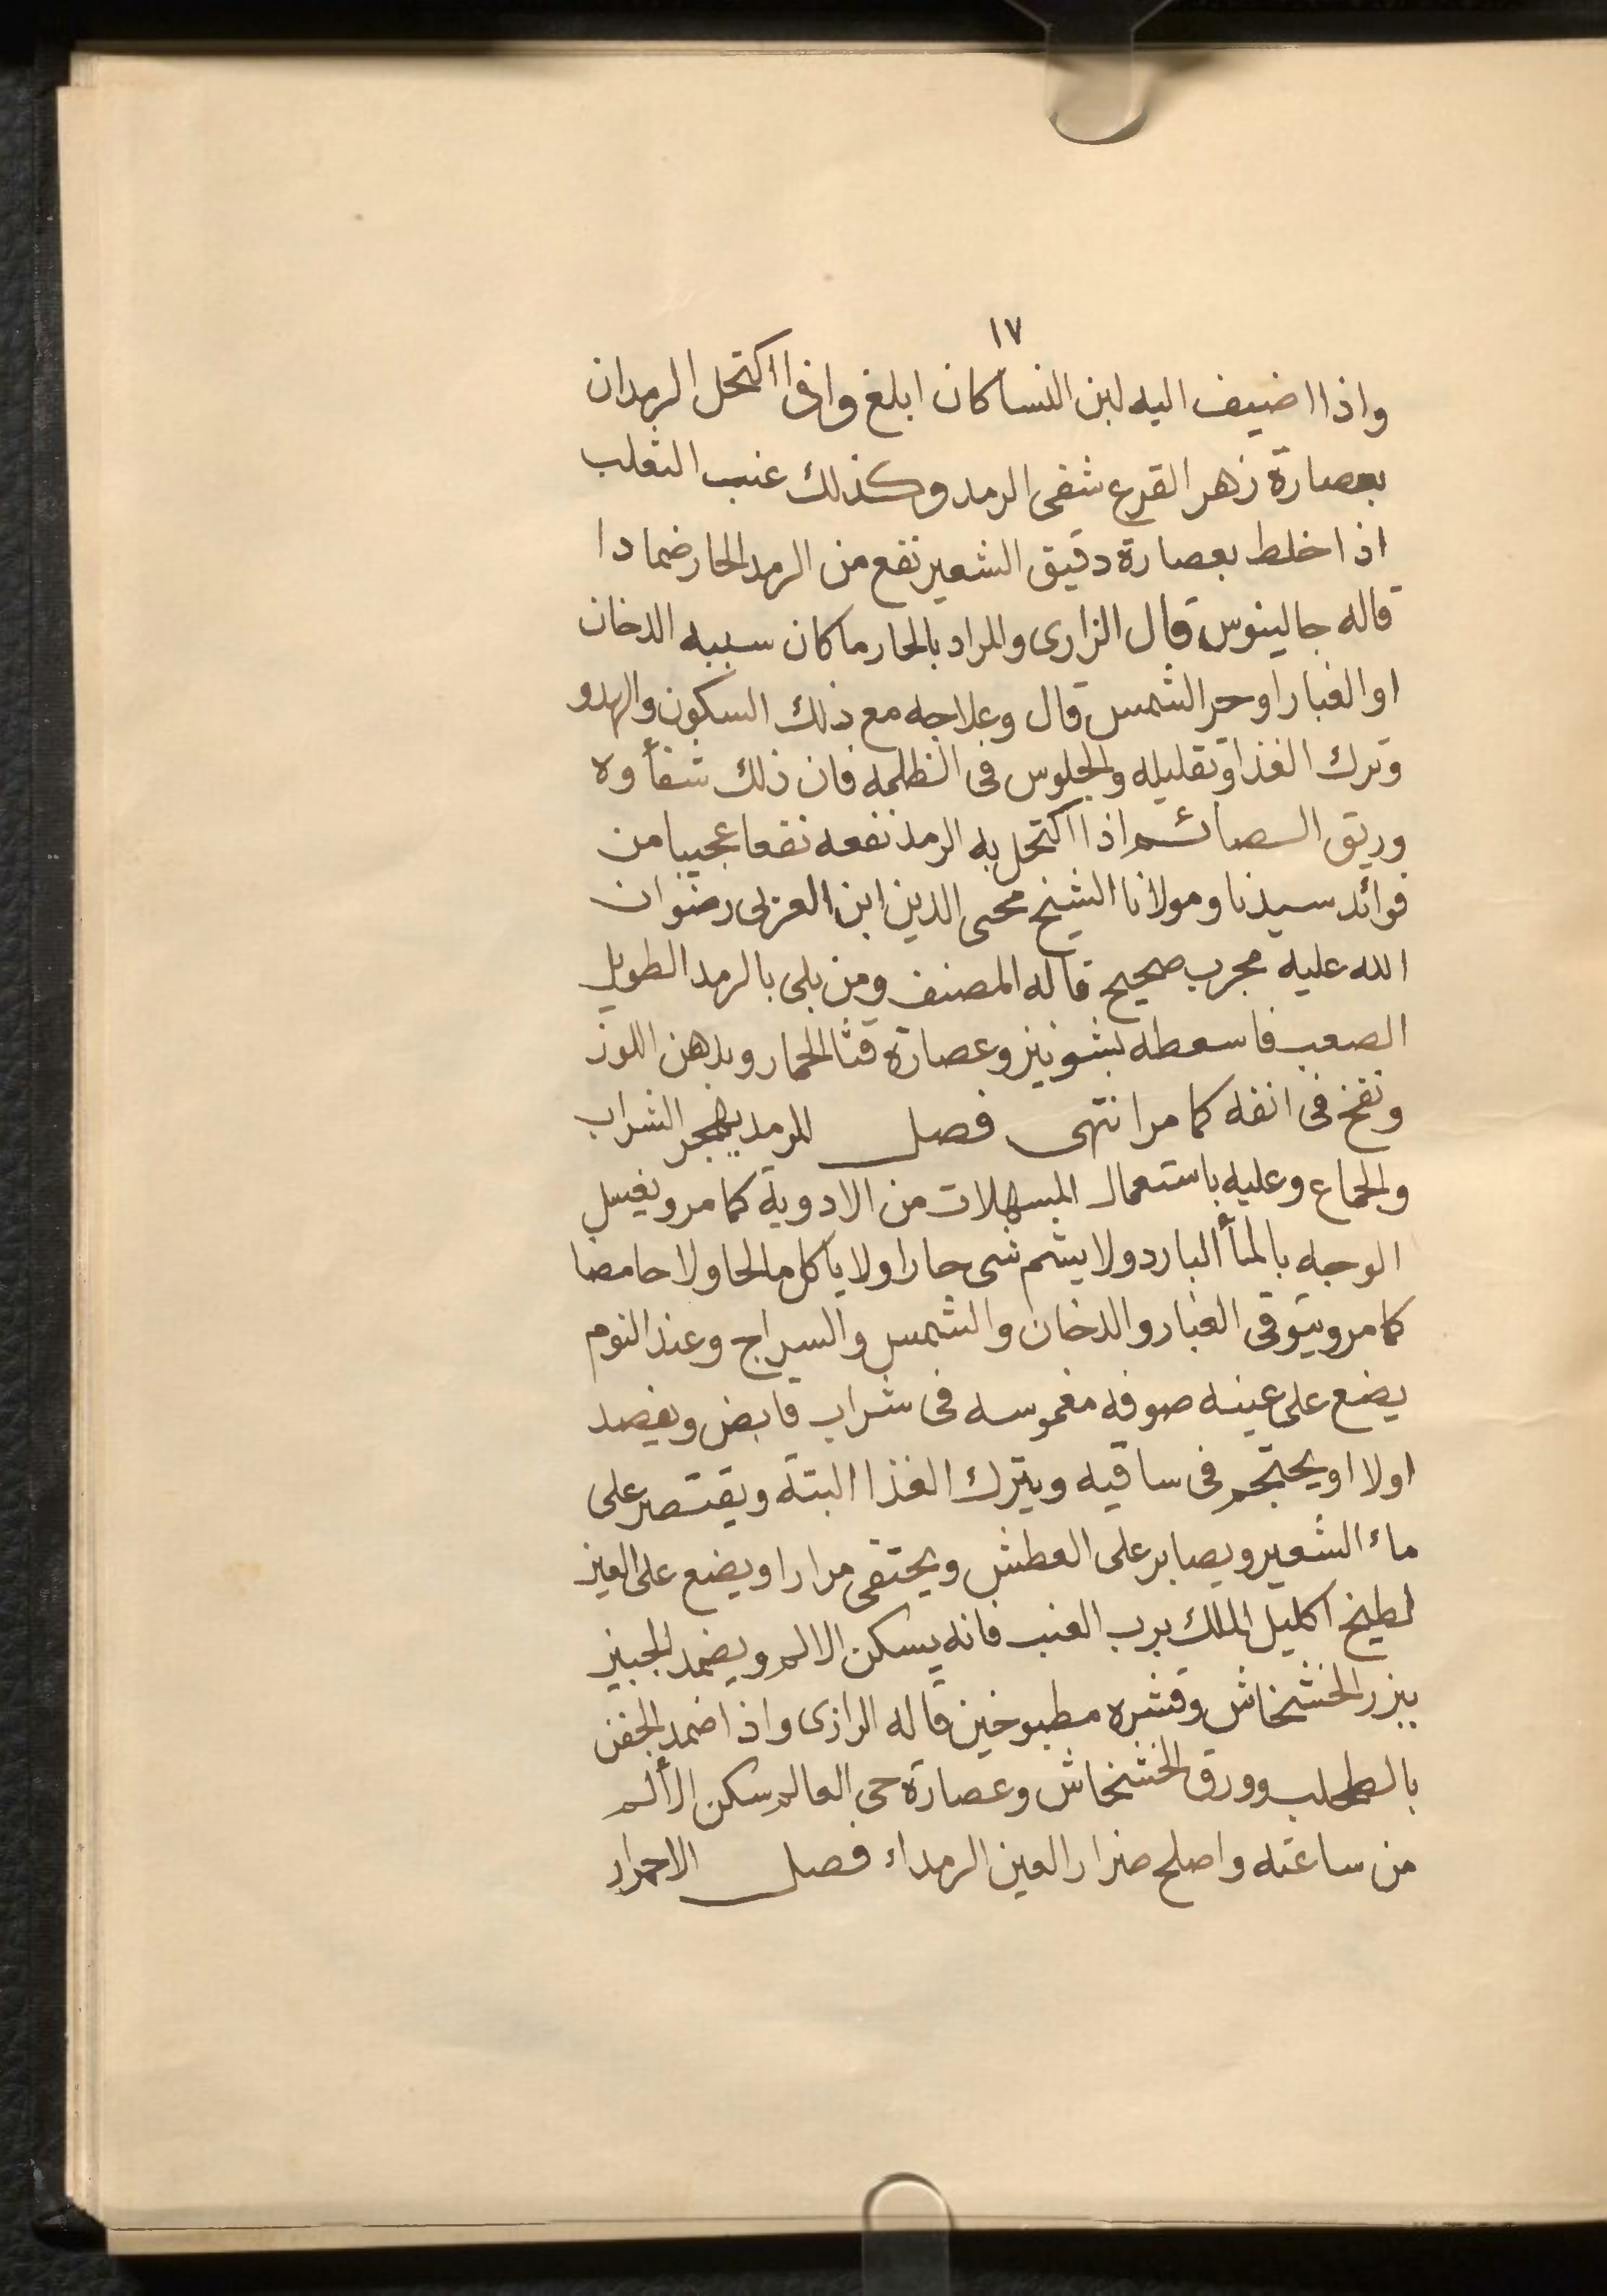 ١٧
واذا اضيف اليه لبن النسا كان ابلغ واذا اكتحل الرمدان
بعصارة زهر القرع شفى الرمد وكذلك عنب الثعلب
اذا خلط بعصارة دقيق الشعير نفع من الرمد الحار ضمادا
قاله جالينوس قال الزارى والمراد بالحار ما كان سببه الدخان
او الغبار او حر الشمس قال وعلاجه مع ذلك السكون والهدو
وترك الغذا وتقليله والجلوس فى الظلمه فان ذلك شفأوه
وريق الصائم اذا اكتحل به الرمد نفعه نفعا عجيبا من
فوائد سيدنا ومولانا الشيخ محى الدين ابن العربى رضوان
الله عليه مجرب صحيح قاله المصنف ومن بلى بالرمد الطويل
الصعب فاسعطه بشونيز وعصارة قثا الحمار وبدهن اللوز
ونفخ فى انفه كما مر انتهى فصل للرمد يهجر الشراب
والجماع وعليه باستعمال المسهلات من الادوية كما مر ويغسل
الوجه بالمأ البارد ولا يشم شى حارا ولا ياكل مالحا ولا حامضا
كما مر ويتوقى الغبار والدخان والشمس والسراج وعند النوم
يضع على عينه صوفه مغموسه فى شراب قابض ويفصد
اولا او يحتجم فى ساقيه ويترك الغذا البتة ويقتصر على
ماء الشعير ويصابر على العطش ويحتقى مرارا ويضع على العين
لطيخ اكليل الملك برب العنب فانه يسكن الالم ويضمد الجبين
ببزر الخشخاش وقشره مطبوخين قاله الرازى واذا ضمد الجفن
بالطحلب وورق الخشخاش وعصارة حى العالم سكن الألم
من ساعته واصلح ضرار العين الرمداء فصل الاحمرار